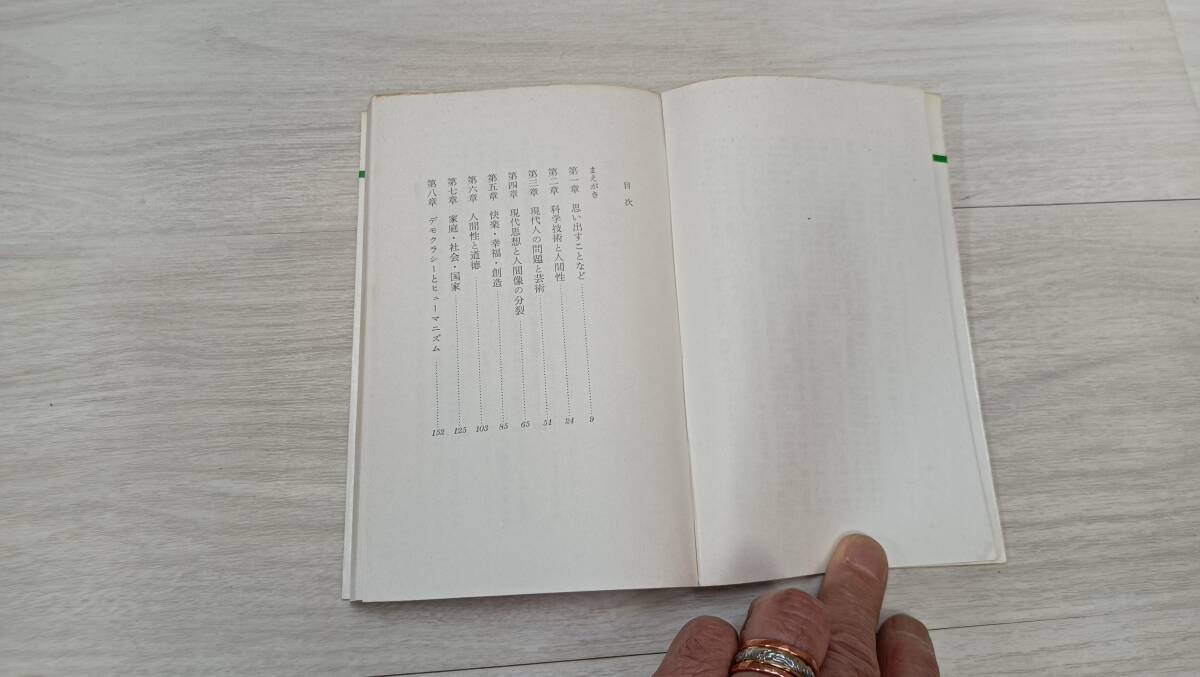 目次
まえがき
第一章 思い出すことなど……9
第二章 科学技術と人間性……24
第三章 現代人の問題と芸術……51
第四章 現代思想と人間像の分裂……65
第五章 快楽・幸福・創造……85
第六章 人間性と道徳……103
第七章 家庭・社会・国家……125
第八章 デモクラシーとヒューマニズム……152